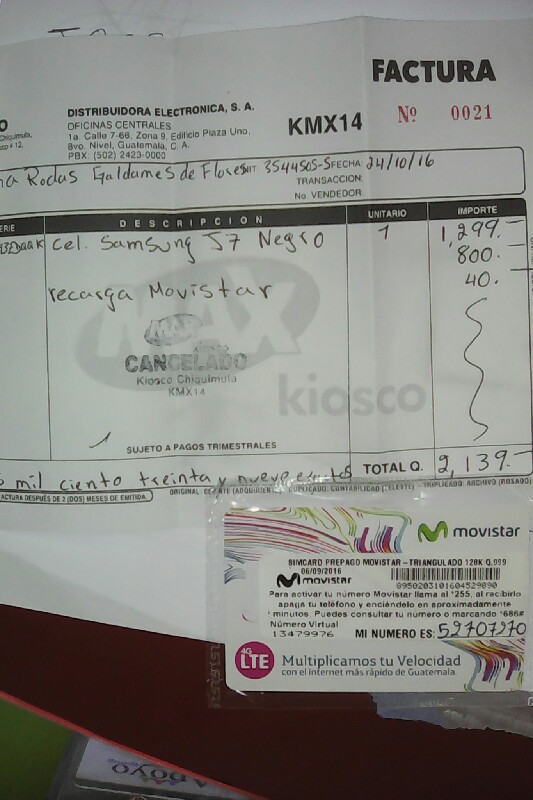 FACTURA
DISTRIBUIDORA ELECTRONICA, S. A.
OFICINAS CENTRALES
1a. Calle 7-66, Zona 9, Edificio Plaza Uno,
8vo. Nivel, Guatemala, C. A.
PBX: (502) 2423-0000
KMX14
Nº 0021
Chiquimula,
Rodas Galdames de Flores NIT 3544505-5 FECHA: 24/10/16
TRANSACCION:
No. VENDEDOR
ERIE DESCRIPCION UNITARIO IMPORTE
cel. Samsung J7 Negro 1 1,299.-
800.-
recarga Movistar 40.
MAX
MAX
CANCELADO
Kiosco Chiquimula
KMX14
kiosco
SUJETO A PAGOS TRIMESTRALES
mil ciento treinta y nueve exactos TOTAL Q. 2,139.-
ACTURA DESPUÉS DE 2 (DOS) MESES DE EMITIDA.
movistar
SIMCARD PREPAGO MOVISTAR - TRIANGULADO 128K Q.999
06/09/2016
movistar
8950203101604529890
Para activar tu número Movistar llama al *255, al recibirlo
apaga tu teléfono y enciéndelo en aproximadamente
minutos. Puedes consultar tu número o marcando *686#
Número Virtual
13479976 MI NUMERO ES: 52707270
4G LTE Multiplicamos tu Velocidad
con el internet más rápido de Guatemala.
Apoyo